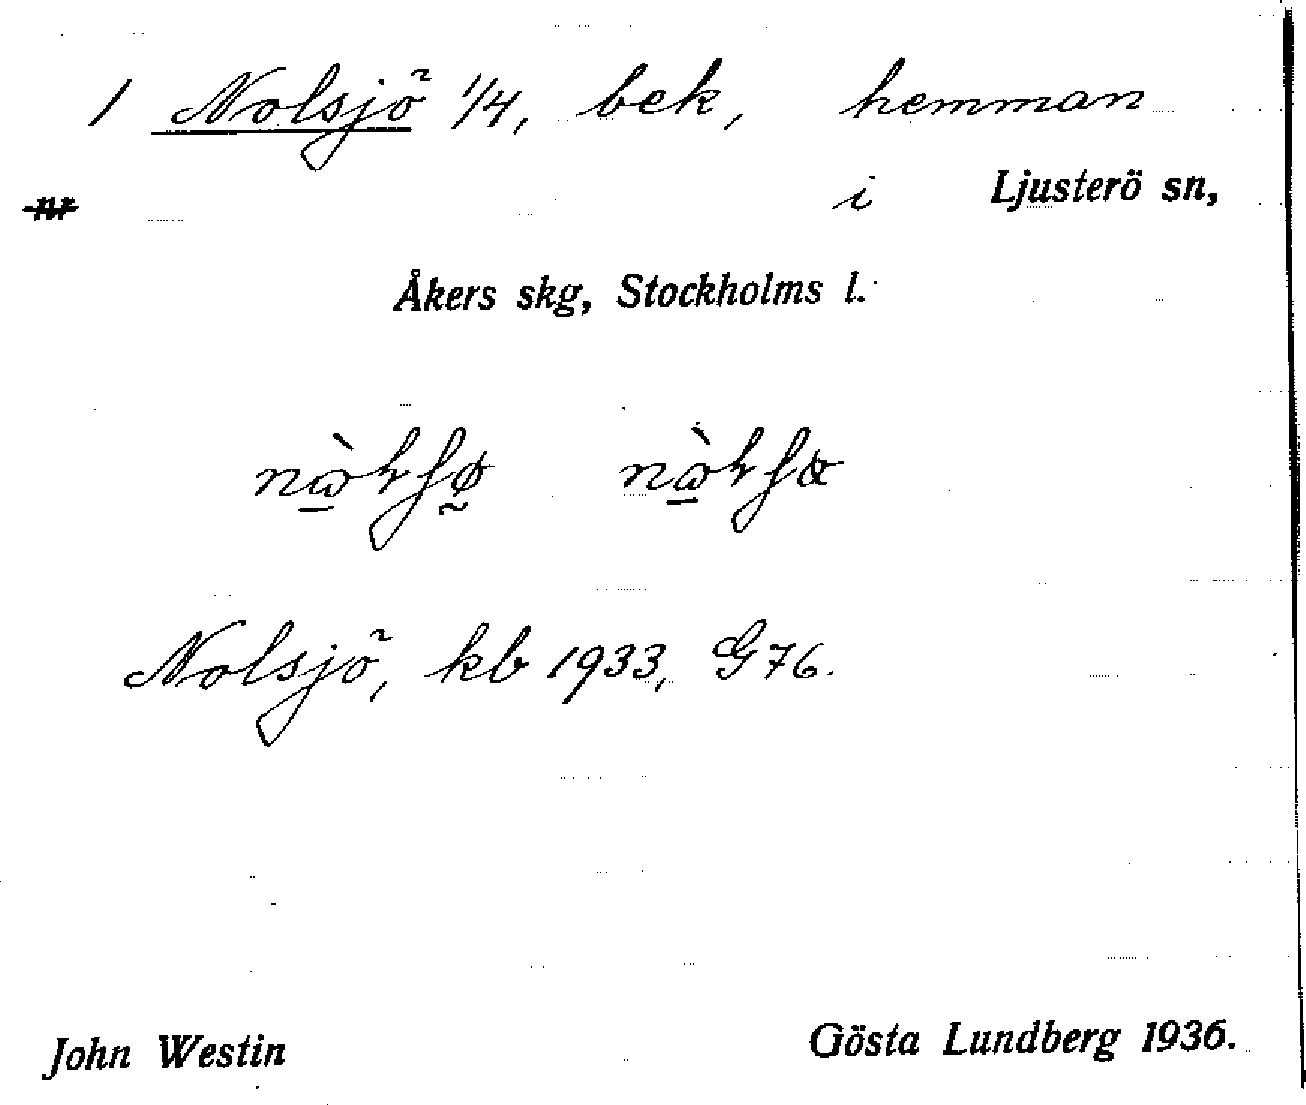 1 Nolsjö 1/4, bek, hemman
nr i Ljusterö sn,
Åkers skg, Stockholms l.
Nolsjö, kb 1933, G76.
John Westin Gösta Lundberg 1936.